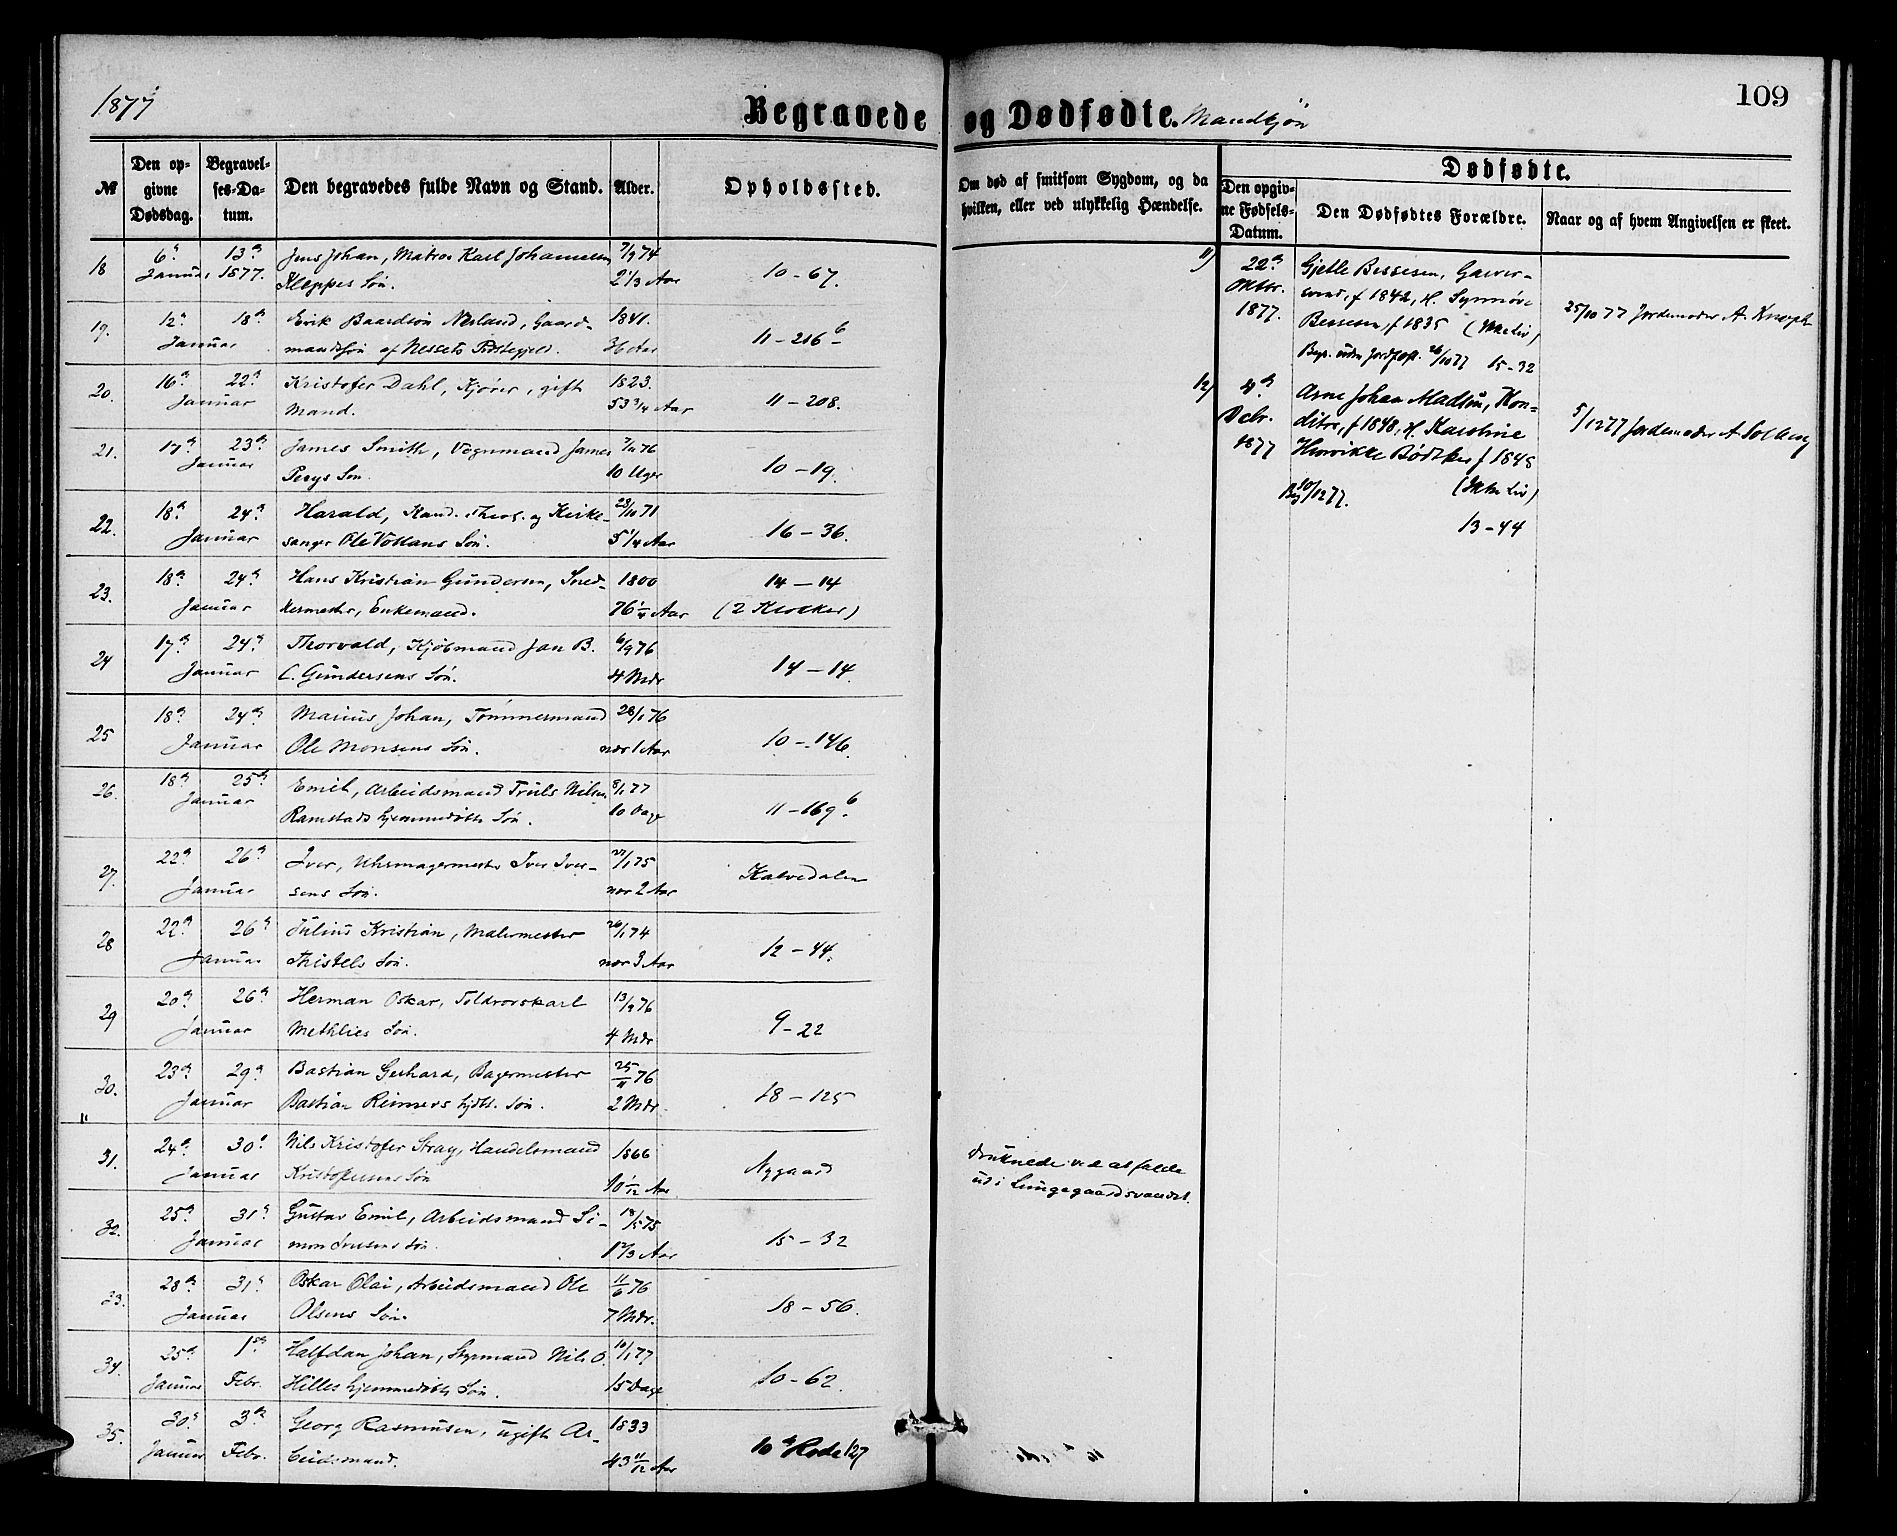 1877
Begravede og Dødfødte. Mandkjøn
109
№
Den opgivne Dødsdag.
Begravelses-Datum.
Den begravedes fulde Navn og Stand.
Alder.
Opholdssted.
Om død af smitsom Sygdom, og da
hvilken, eller ved ulykkelig Hændelse.
Dødfødte.
Den opgivne Fødsels-Datum.
Den Dødfødtes Forældre.
Naar og af hvem Angivelsen er skeet.
18 6te 13de Jens Johan, Matros Karl Johannesen 7/9 74
Januar 1877. Kleppes Søn. 2 1/3 Aar 10-67.
19. 12te 18de Erik Baardsøn Nesland, Gaard- 1841.
Januar mandssøn af Nessets Præstegjeld. 36 Aar 11-216 b
20. 16de 22de Kristofer Dahl, Kjører, gift 1823.
Januar Mand. 53 3/4 Aar 11-208.
21. 17de 23de James Smith, Vognmand James 7/11 76
Januar Søn. 10 Uger 10-19.
22. 18de 24de Harald, Kand. Theol. og Kirke- 23/10 71
Januar sanger Ole Søn. 5 1/4 Aar 16-36.
23. 18de 24de Hans Kristian Gundersen, Sned- 1800 14-14
Januar kermester, Enkemand. 76 1/4 Aar (2 Klokker)
24 17de 24de Thorvald, Kjøbmand Jan B. 6/9 76
Januar C. Gundersens Søn. 4 Mdr 14-14.
25 18de 24de Marius Johan, Tømmermand 28/1 76
Januar Ole Monsens Søn. nær 1 Aar 10-146.
26. 18de 25de Emil, Arbeidsmand Truls Nilsen 8/1 77
Januar Ramstads hjemmedøbte Søn. 10 Dage 11-169 b.
27. 22de 26de Iver, Uhrmagermester Iver Iver- 27/1 75
Januar sens Søn. nær 2 Aar Kalvedalen
28 22de 26de Julius Kristian, Malermester 26/1 74
Januar Thistels Søn. nær 3 Aar 12-44.
29 20de 26de Herman Oskar, Toldrorskarl 13/9 76
Januar Methlies Søn. 4 Mdr 9-22
30. 23de 29de Bastian Gerhard, Bagermester 25/11 76
Januar Bastian Reimers hjdbt. Søn. 2 Mdr. 18-125
31. 24de 30te Nils Kristofer Stray, Handelsmand 1866
Januar Kristofersens Søn 10 1/12 Aar Nygaard
druknede ved at falde
ud i Lungegaardsvandet.
32. 25de 31te Gustav Emil, Arbeidsmand Si- 18/5 75
Januar mon Søn. 1 2/3 Aar 15-32
33. 28de 31te Oskar Olai, Arbeidsmand Ole 11/6 76
Januar Olsens Søn. 7 Mdr. 18-56.
34. 25de 1ste Halfdan Johan, Styrmand Nils O. 10/1 77
Januar Febr. Hilles hjemmedøbte Søn. 15 Dage 10-62.
35. 30te 3de Georg Rasmussen, ugift Ar- 1833
Januar Febr. beidsmand. 43 11/12 Aar 10de Rode 127
11) 22de Gjetle Bessesen, Garver-
Oktbr. svend, f 1842, H. Synnøve
1877. Bessesen, f 1835 (Ikke Liv) 25/10 77 Jordemoder A.
Begr. uden Jordpaak. 26/10 77 15-32
12) 4de Arne Johan Madsen, Kon-
Decbr. ditor, f 1848, H. Karoline
1877 Henrikke Bødtker f 1848 5/12 77 Jordemoder A Solberg
Beg 10/12 77. (Ikke Liv)
13-44